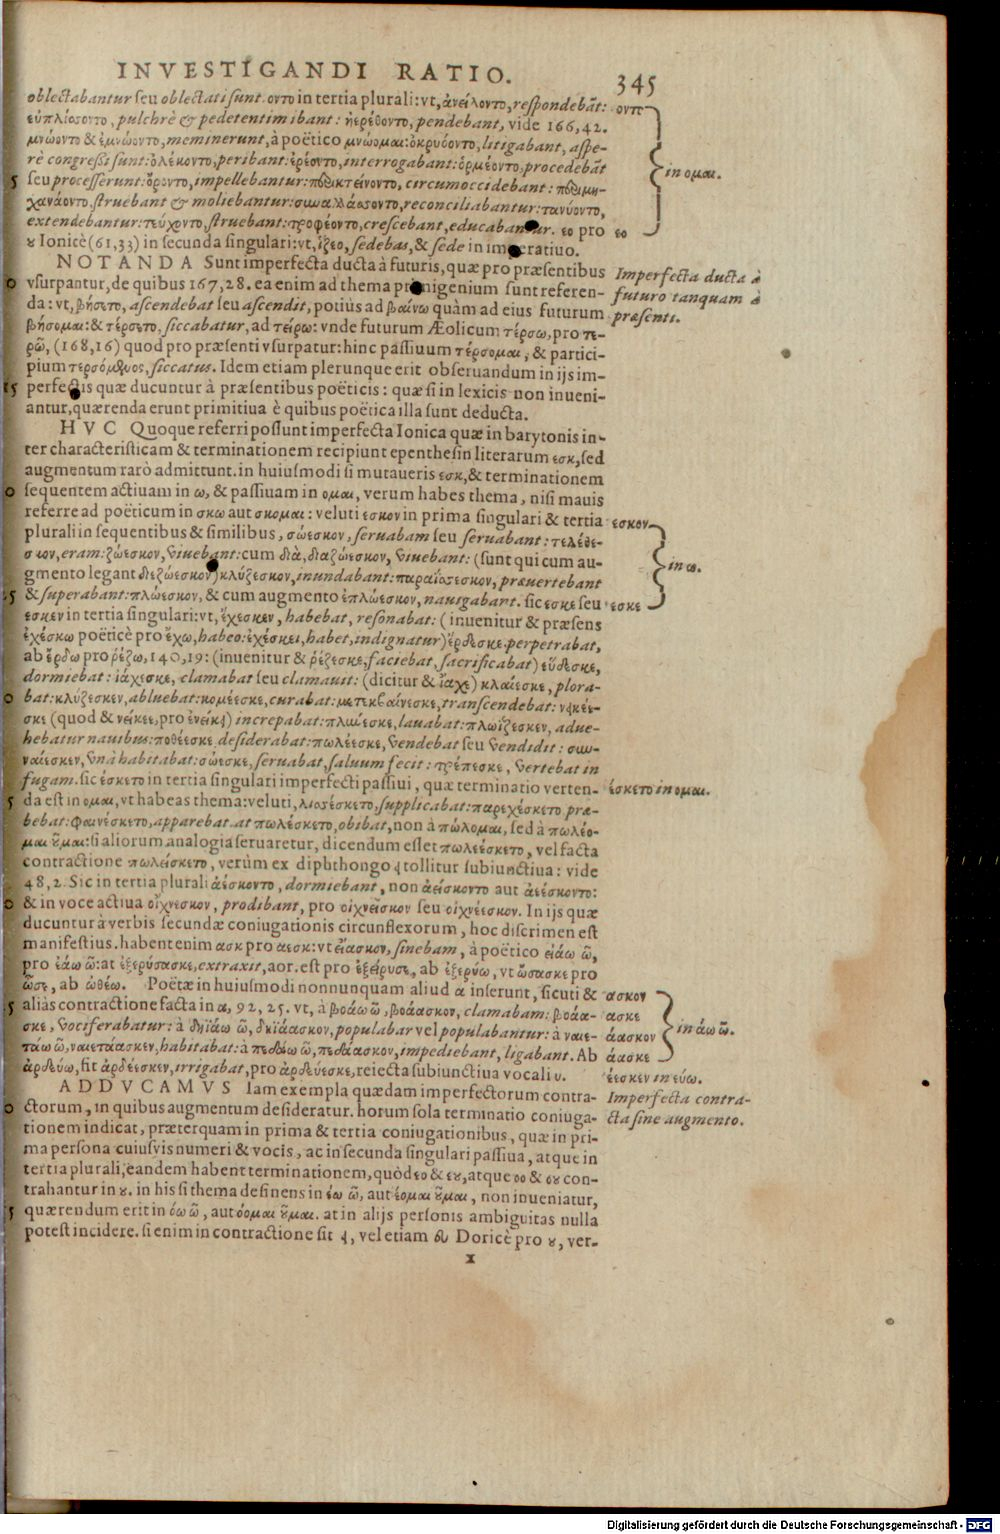 INVESTIGANDI RATIO.
345
oblectabantur seu oblectati sunt. οντο in tertia plurali: vt, ἀνείλοντο, respondebāt:
εὐπλίοσοντο, pulchrè & pedetentim ibant: ἠερέθοντο, pendebant, vide 166, 42.
μνώοντο & ἐμνώοντο, meminerunt, à poëtico μνώομαι: ὀκρυόοντο, litigabant, aspe-
rè congressi sunt: ὀλέκοντο, peribant: ἐρέοντο, interrogabant: ὁρμέοντο, procedebāt
5 seu processerunt: ὄροντο, impellebantur: περικτείνοντο, circumoccidebant: περιμη-
χανάοντο, struebant & moliebantur: συναλλάσσοντο, reconciliabantur: τανύοντο,
extendebantur: τεύχοντο, struebant: τροφέοντο, crescebant, educabantur. εο pro
ȣ Ionicè (61, 33) in secunda singulari: vt, ἵζεο, sedebas, & sede in imperatiuo.
οντο
in ομαι.
εο
NOTANDA Sunt imperfecta ducta à futuris, quæ pro præsentibus
0 vsurpantur, de quibus 167, 28. ea enim ad thema primigenium sunt referen-
da: vt, βήσετο, ascendebat seu ascendit, potiùs ad βαίνω quàm ad eius futurum
βήσομαι: & τέρσετο, siccabatur, ad τείρω: vnde futurum Æolicum τέρσω, pro τε-
ρῶ, (168, 16) quod pro præsenti vsurpatur: hinc passiuum τέρσομαι, & partici-
pium τερσόμενος, siccatus. Idem etiam plerunque erit obseruandum in ijs im-
15 perfectis quæ ducuntur à præsentibus poëticis: quæ si in lexicis non inueni-
antur, quærenda erunt primitiua è quibus poëtica illa sunt deducta.
Imperfecta ducta à
futuro tanquam à
præsenti.
HVC Quoque referri possunt imperfecta Ionica quæ in barytonis in-
ter characteristicam & terminationem recipiunt epenthesin literarum εσκ, sed
augmentum rarò admittunt. in huiusmodi si mutaueris εσκ, & terminationem
0 sequentem actiuam in ω, & passiuam in ομαι, verum habes thema, nisi mauis
referre ad poëticum in σκω aut σκομαι: veluti εσκον in prima singulari & tertia
plurali in sequentibus & similibus, σώεσκον, seruabam seu seruabant: τελέθε-
σκον, eram: ζώεσκον, viuebant: cum διὰ, διαζώεσκον, viuebant: (sunt qui cum au-
gmento legant διεζώεσκον) κλύζεσκον, inundabant: παραΐσσεσκον, præuertebant
5 & superabant: πλώεσκον, & cum augmento ἐπλώεσκον, nauigabant. sic εσκε seu
εσκεν in tertia singulari: vt, ἔχεσκεν, habebat, resonabat: (inuenitur & præsens
ἐχέσκω poëticè pro ἔχω, habeo: ἐχέσκει, habet, indignatur) ἔρδεσκε, perpetrabat,
ab ἔρδω pro ῥέζω, 140, 19: (inuenitur & ῥέζεσκε, faciebat, sacrificabat) εὕδεσκε,
dormiebat: ἰάχεσκε, clamabat seu clamauit: (dicitur & ἴαχε) κλαίεσκε, plora-
0 bat: κλύζεσκεν, abluebat: κομέεσκε, curabat: μετεκβαίνεσκε, transcendebat: νεικέε-
σκε (quod & νείκεε, pro ἐνείκει) increpabat: πλύνεσκε, lauabat: πλωΐζεσκεν, adue-
hebatur nauibus: ποθέεσκε, desiderabat: πωλέεσκε, vendebat seu vendidit: συν-
ναίεσκεν, vnà habitabat: σώεσκε, seruabat, saluum fecit: τρέπεσκε, vertebat in
fugam. sic έσκετο in tertia singulari imperfecti passiui, quæ terminatio verten-
5 da est in ομαι, vt habeas thema: veluti, λισσέσκετο, supplicabat: παρεχέσκετο præ-
bebat: φαινέσκετο, apparebat. at πωλέσκετο, obibat, non à πώλομαι, sed à πωλέο-
μαι οῦμαι: si aliorum analogia seruaretur, dicendum esset πωλεέσκετο, vel facta
contractione πωλείσκετο, verùm ex diphthongo ει tollitur subiunctiua: vide
48, 2. Sic in tertia plurali ἀέσκοντο, dormiebant, non ἀείσκοντο aut ἀεέσκοντο:
0 & in voce actiua οἴχνεσκον, prodibant, pro οἰχνεῖσκον seu οἰχνέεσκον. In ijs quæ
ducuntur à verbis secundæ coniugationis circunflexorum, hoc discrimen est
manifestius. habent enim ασκ pro αεσκ: vt εἴασκον, sinebam, à poëtico εἰάω ῶ,
pro ἐάω ῶ: at ἐξερύσασκε, extraxit, aor. est pro ἐξείρυσε, ab ἐξερύω, vt ὤσασκε pro
ὦσε, ab ὠθέω. Poëtæ in huiusmodi nonnunquam aliud α inserunt, sicuti &
5 aliàs contractione facta in α, 92, 25. vt, à βοάω ῶ, βοάασκον, clamabam: βοάα-
σκε, vociferabatur: à δηϊάω ῶ, δηϊάασκον, populabar vel populabantur: à ναιε-
τάω ῶ, ναιετάασκεν, habitabat: à πεδάω ῶ, πεδάασκον, impediebant, ligabant. Ab
ἀρδεύω, fit ἀρδέεσκεν, irrigabat, pro ἀρδεύεσκε, reiecta subiunctiua vocali υ.
εσκον
in ω.
εσκε
έσκετο in ομαι.
ασκον
ασκε
άασκον
άασκε
in άω ῶ.
έεσκεν in εύω.
ADDVCAMVS Iam exempla quædam imperfectorum contra-
0 ctorum, in quibus augmentum desideratur. horum sola terminatio coniuga-
tionem indicat, præterquam in prima & tertia coniugationibus, quæ in pri-
ma persona cuiusvis numeri & vocis, ac in secunda singulari passiua, atque in
tertia plurali, eandem habent terminationem, quòd εο & εȣ, atque οο & οȣ con-
trahantur in ȣ. in his si thema desinens in έω ῶ, aut έομαι οῦμαι, non inueniatur,
5 quærendum erit in όω ῶ, aut όομαι οῦμαι. at in alijs personis ambiguitas nulla
potest incidere. si enim in contractione sit ει, vel etiam ευ Doricè pro ȣ, ver-
Imperfecta contra-
cta sine augmento.
x
Digitalisierung gefördert durch die Deutsche Forschungsgemeinschaft - DFG